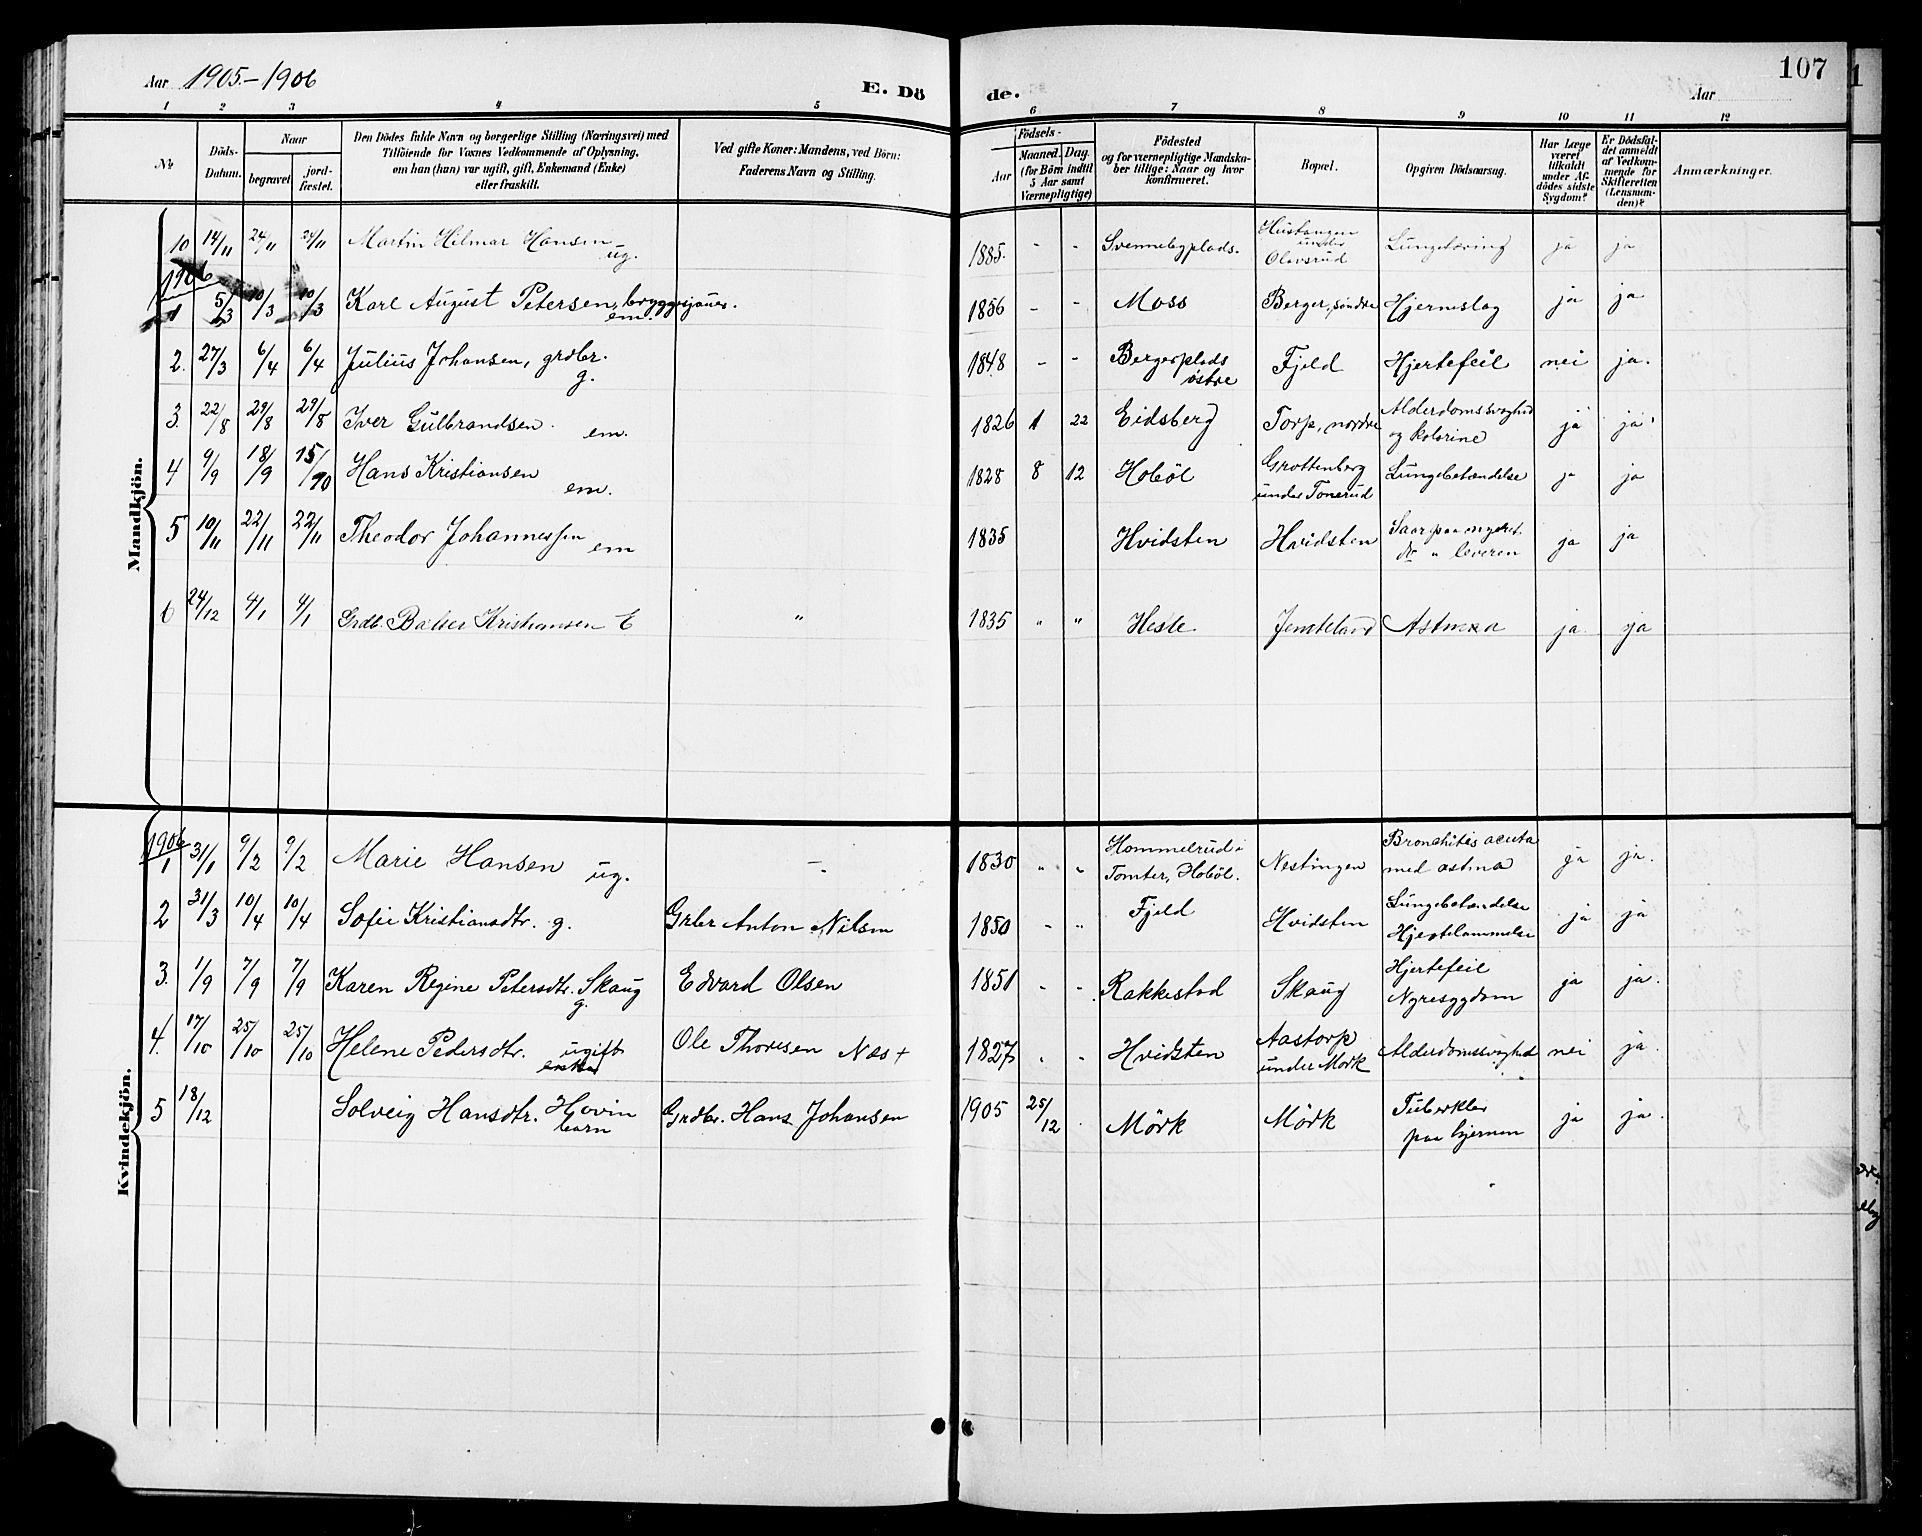 Aar 1905.-1906
E. Dö de.
Aar
107
1 2 3 4 5 6 7 8 9 10 11 12
№
Döds-Datum.
Naar
begravet
jord-fæstet.
Den Dödes fulde Navn og borgerlige Stilling (Næringsvei) med
Tilföiende for Voxnes Vedkommende af Oplysning,
om han (hun) var ugift, gift, Enkemand (Enke)
eller fraskilt.
Ved gifte Koner: Mandens, ved Börn:
Faderens Navn og Stilling.
Födsels-
Aar
Maaned. Dag.
(for Börn indtil
5 Aar samt
Værnepligtige)
Födested
og for værnepligtige Mandska-
ber tillige: Naar og hvor
konfirmeret.
Bopæl.
Opgiven Dödsaarsag.
Har Læge
været
tilkaldt
under Af-
dödes sidste
Sygdom?
Er Dödsfal-
det anmeldt
af Vedkom-
mende for
Skifteretten
(Lensman-
den)?
Anmærkninger.
Mandkjön.
10 14/11 24/11 24/11 Martin Hilmar Hansen ug. 1885. - - Svennebyplads. under Olavsrud ja ja
1906
1 5/3 10/3 10/3 Karl August Petersen, em. 1856 - - Moss Berger, söndre Hjerneslag ja ja
2. 27/3 6/4 6/4 Julius Johansen, grdbr. g. 1848 - - Bergerplads östre Fjeld Hjertefeil nei ja.
3. 22/8 29/8 29/8 Iver Gulbrandsen. em. 1826 1 22 Eidsberg Torp, nordre Alderdomssvaghed og kolerine ja ja
4 9/9 18/9 15/90 Hans Kristiansen em. 1828 8 12 Hobøl Grottenberg under Tonerud Lungebetændelse ja ja
5 10/11 22/11 22/11 Theodor Johannessen em 1835 Hvidsten Hvidsten Saar paa do " leveren ja ja
6 24/12 4/1 4/1 Grdb. Kristiansen E " 1835 " " Hesle Astma ja ja
Kvindekjön.
1906
1 31/1 9/2 9/2 Marie Hansen ug. - 1830 " " Hommelrud i Tomter, Hobøl. Nestingen Bronchitis acuta med astma ja ja.
2 31/3 10/4 10/4 Sofie Kristiansdtr. g. Grbr Anton Nilsen 1850 - " Fjeld Hvidsten Lungebetændelse Hjertelammelse ja ja
3. 1/9 7/9 7/9 Karen Regine Petersdtr. Skaug g. Edvard Olsen 1851 - - Rakkestad Skaug Hjertefeil Nyresygdom ja ja.
4. 17/10 25/10 25/10 Helene Pedersdtr. ugift Ole Thoresen Næs + 1827 - - Hvidsten Aastorp under Mørk Alderdomssvaghed nei ja.
5 18/12 Solveig Hansdtr. Hovin barn Grdbr. Hans Johansen 1905 25/12 Mörk Mörk Tuberkler paa hjernen ja ja.